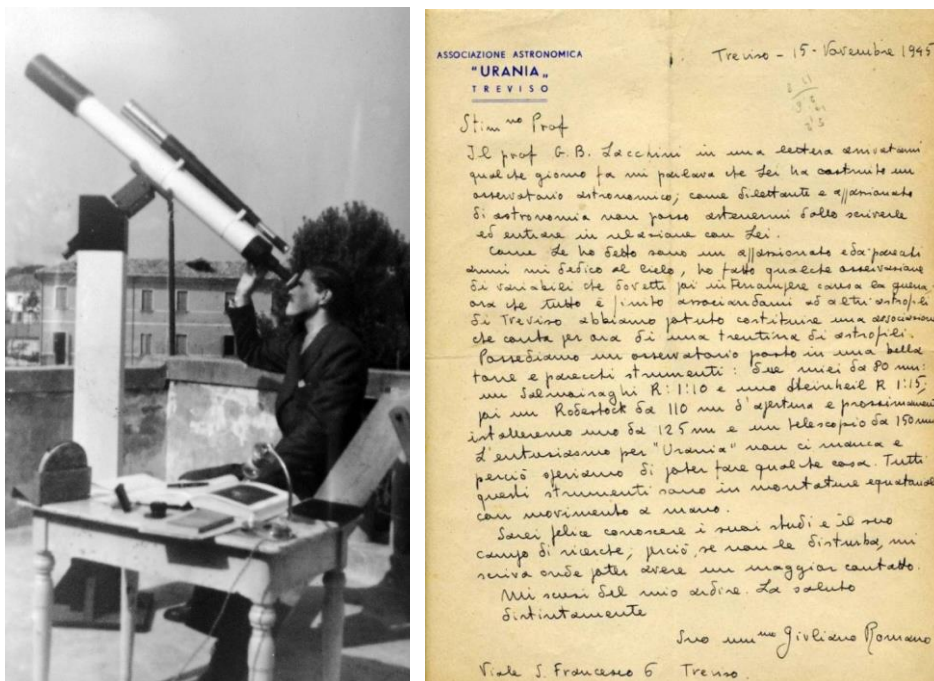 ASSOCIAZIONE ASTRONOMICA
"URANIA„
TREVISO
Treviso - 15 - Novembre 1945
Stim.mo Prof
Il prof G. B. Lacchini in una lettera arrivatami
qualche giorno fa mi parlava che Lei ha costruito un
osservatorio astronomico; come dilettante e appassionato
di astronomia non posso astenermi dallo scriverle
ed entrare in relazione con Lei.
Come Le ho detto sono un appassionato e da parecchi
anni mi dedico al cielo, ho fatto qualche osservazione
di variabili che dovetti poi interrompere causa la guerra
ora che tutto è finito associandomi ad altri astrofili
di Treviso abbiamo potuto costituire una associazione
che conta per ora di una trentina di astrofili.
Possediamo un osservatorio posto in una bella
torre e parecchi strumenti: due miei da 80 mm:
un Salmoiraghi R: 1:10 e uno Steinheil R 1:15;
poi un Rodestock da 110 mm d'apertura e prossimamente
istalleremo uno da 125 mm e un telescopio da 150 mm
L'entusiasmo per "Urania" non ci manca e
perciò speriamo di poter fare qualche cosa. Tutti
questi strumenti sono in montature equatoriali
con movimento a mano.
Sarei felice conoscere i suoi studi e il suo
campo di ricerche; perciò, se non le disturba, mi
scriva onde poter avere un maggior contatto.
Mi scusi del mio ardire. La saluto
distintamente
Suo umm.mo Giuliano Romano
Viale S. Francesco 6 Treviso.